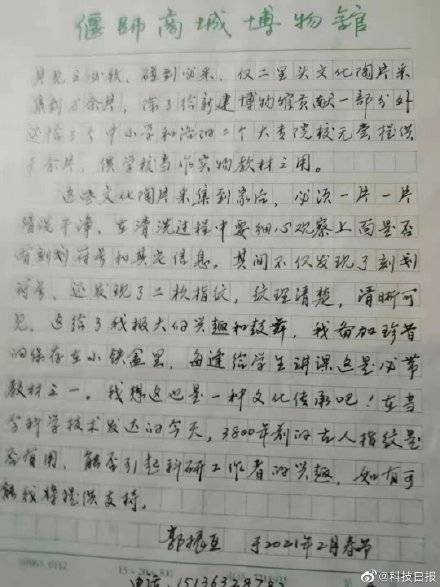 偃師商城博物館
见必救、碰到必采,仅二里头文化陶片采
集到万余片,除了给新建博物馆贡献一部分外
还给了中小学和洛阳二个大专院校无偿提供
千余片,供学校当作实物教材之用。
这些文化陶片采集到家后,必须一片一片
清洗干净,在清洗过程中要细心观察上面是否
有刻划符号和其它信息。其间不仅发现了刻划
符号、还发现了二枚指纹,纹理清楚,清晰可
见、这给了我极大的兴趣和鼓舞,我倍加珍惜
的保存在小铁盒里,每逢给学生讲课这是必带
教材之一。我想这也是一种文化传承吧!在当
今科学技术发达的今天,3800年前的古人指纹是
否有用,能否引起科研工作者的兴趣,如有可
能我将提供支持。
郭振亚 于2021年2月春节
15×20=300
电话
@科技日报